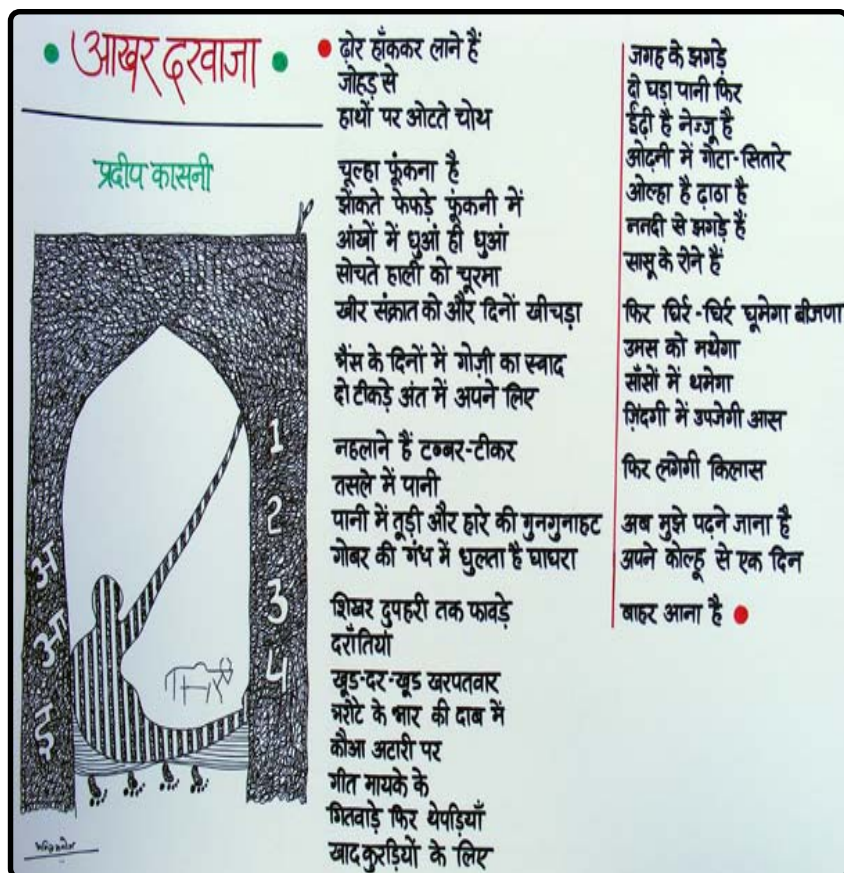 आखर दरवाजा
प्रदीप कासनी
1
2
3
4
अ
आ
इ
ढ़ोर हाँककर लाने हैं
जोहड़ से
हाथों पर ओटते चोथ
चूल्हा फूंकना है
झोंकते फेफड़े फूंकनी में
आंखों में धुआं ही धुआं
सोचते हाली को चूरमा
खीर संक्रात को और दिनों खीचड़ा
भैंस के दिनों में गोज़ी का स्वाद
दो टीकड़े अंत में अपने लिए
नहलाने हैं टब्बर-टीकर
तसले में पानी
पानी में तूड़ी और हारे की गुनगुनाहट
गोबर की गंध में धुलता है घाघरा
शिखर दुपहरी तक फावड़े
दराँतियां
खूड-दर-खूड खरपतवार
भरोटे के भार की दाब में
कौआ अटारी पर
गीत मायके के
गितवाड़े फिर थेपड़ियाँ
खाद कुरड़ियों के लिए
जगह के झगड़े
दो घड़ा पानी फिर
ईंढ़ी है नेज्जू है
ओढ़नी में गोटा-सितारे
ओल्हा है ढ़ाठा है
ननदी से झगड़े हैं
सासू के रोने हैं
फिर घिर्र-घिर्र घूमेगा बीजणा
उमस को मथेगा
साँसों में थमेगा
ज़िंदगी में उपजेगी आस
फिर लगेगी किलास
अब मुझे पढ़ने जाना है
अपने कोल्हू से एक दिन
बाहर आना है